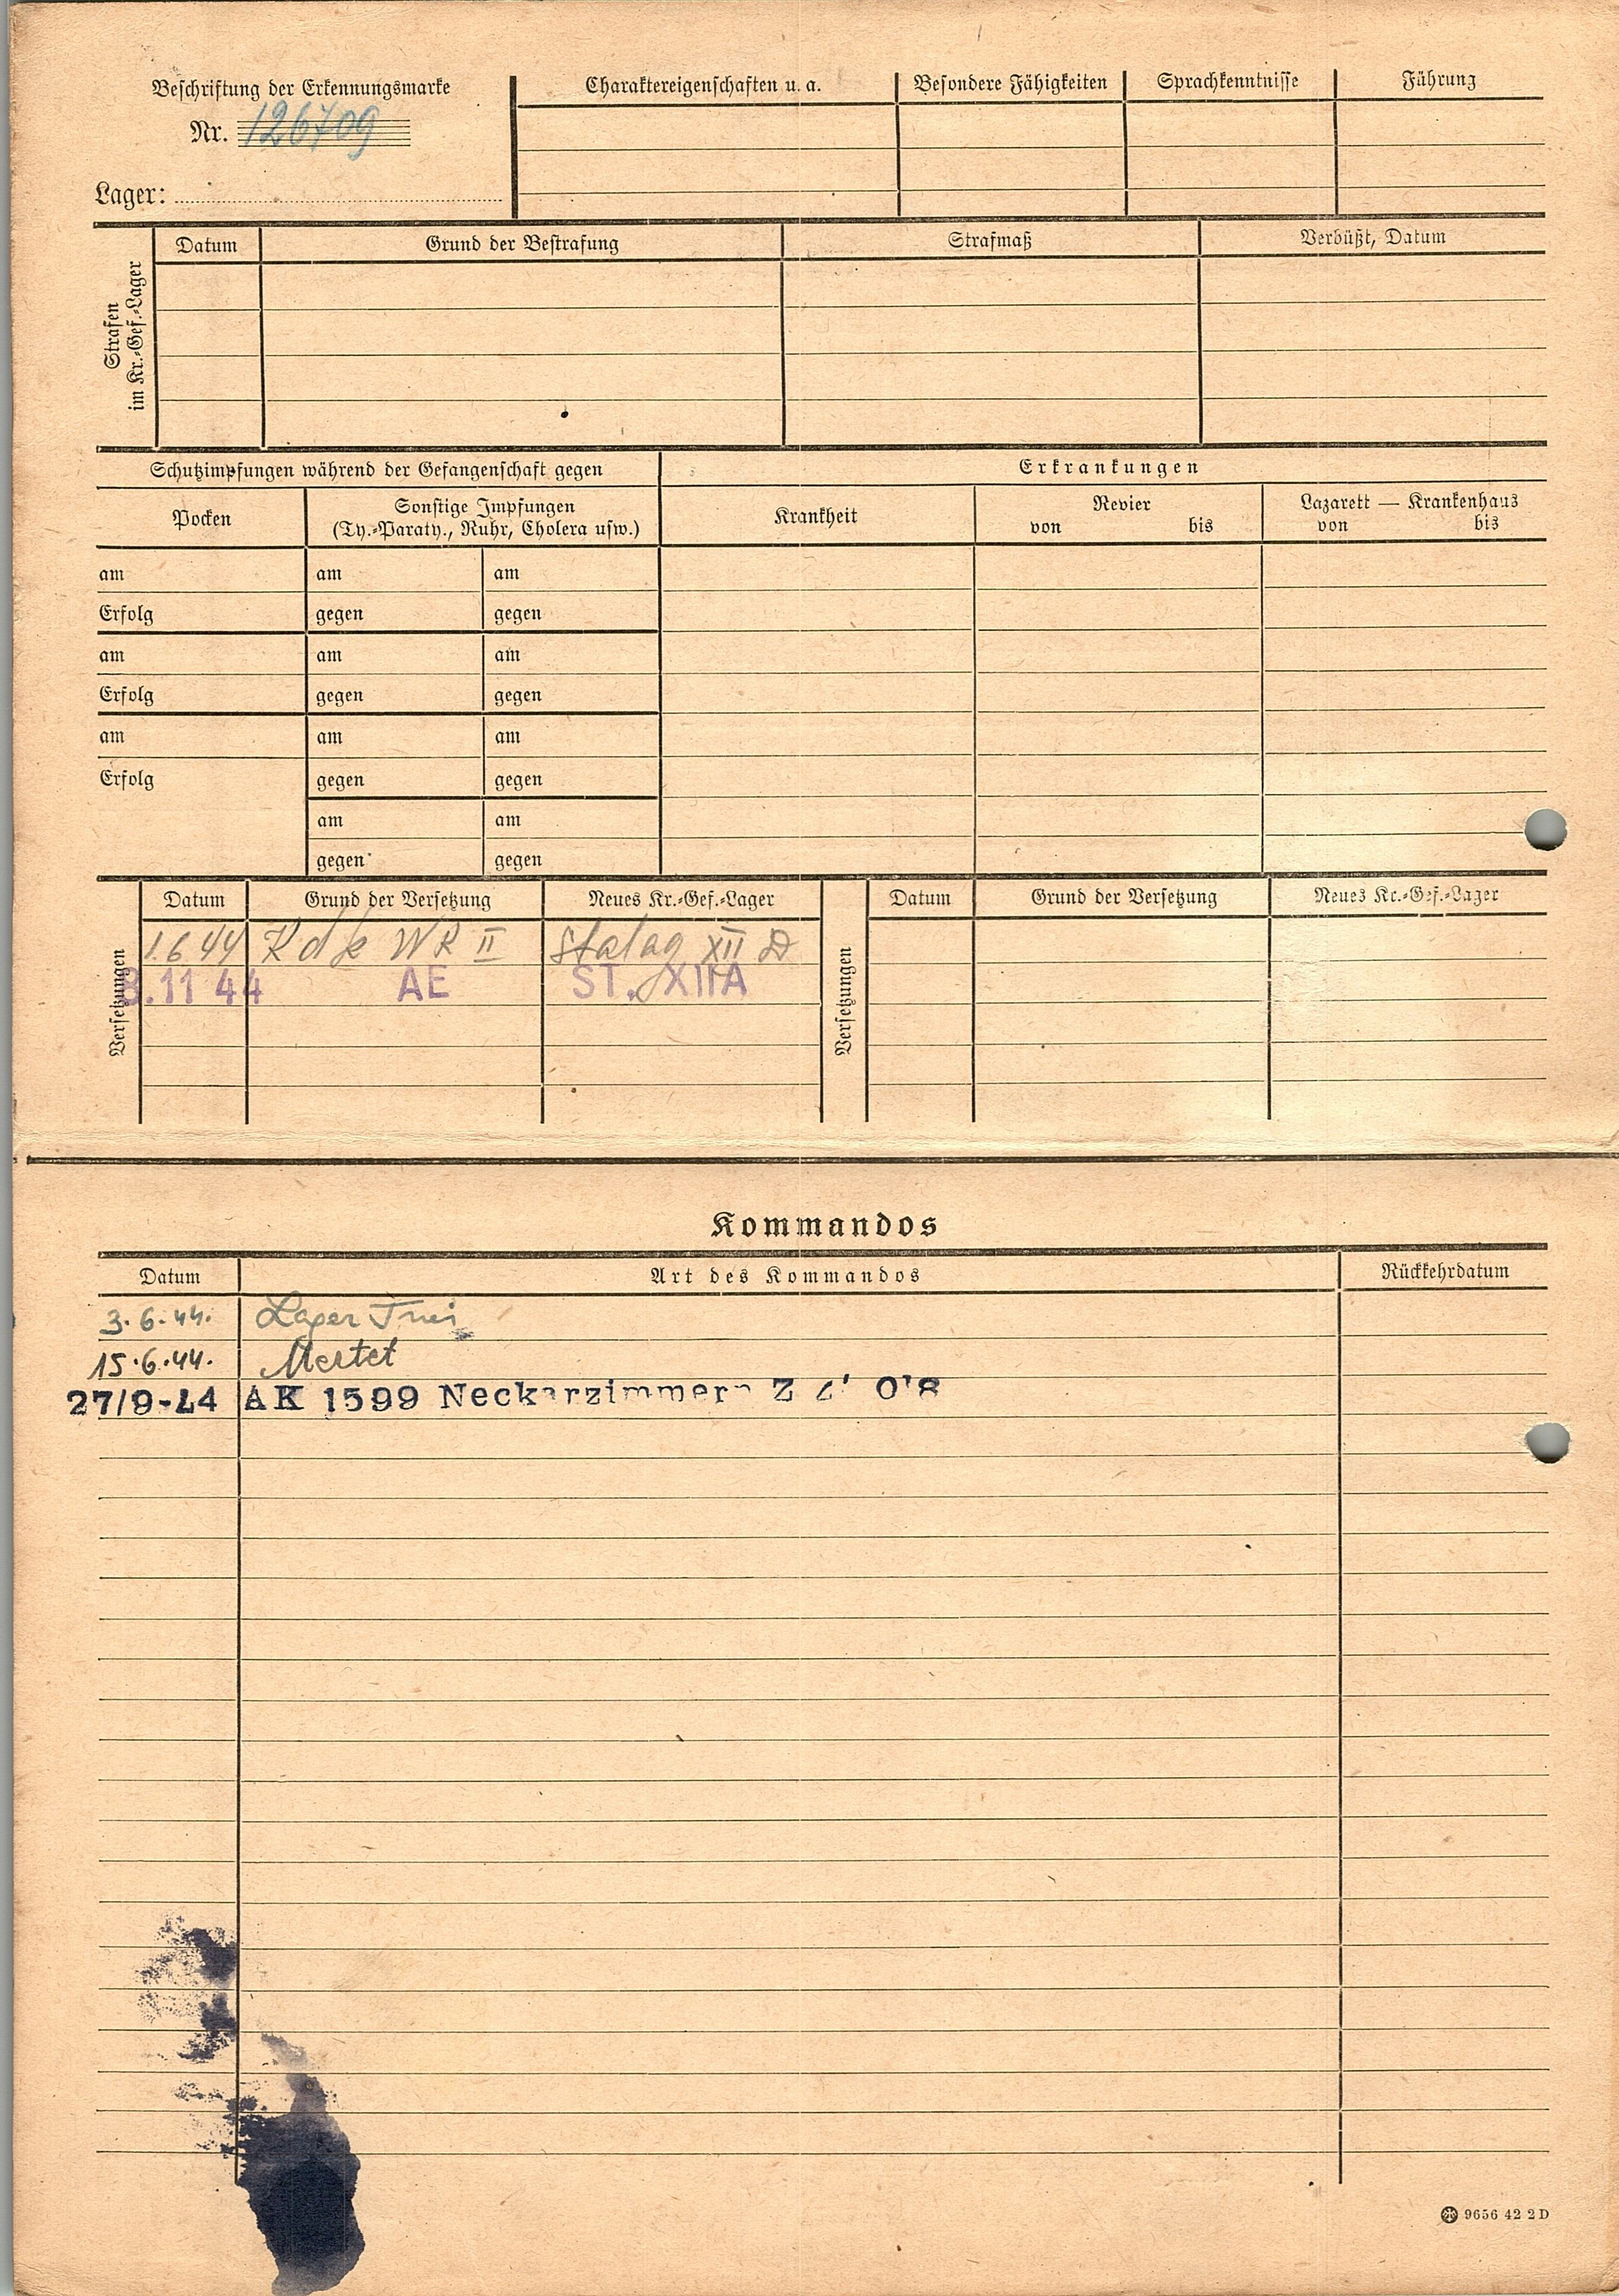 Beschriftung der Erkennungsmarke
Nr. 126709
Lager:
Charaktereigenschaften u. a. Besondere Fähigkeiten Sprachkenntnisse Führung
Strafen
im Kr.-Gef.-Lager
Datum Grund der Bestrafung Strafmaß Verbüßt, Datum
Schutzimpfungen während der Gefangenschaft gegen Erkrankungen
Pocken
Sonstige Impfungen
(Ty.-Paraty., Ruhr, Cholera usw.)
Krankheit
Revier
von bis
Lazarett — Krankenhaus
von bis
am am am
Erfolg gegen gegen
am am am
Erfolg gegen gegen
am am am
Erfolg gegen gegen
am am
gegen gegen
Versetzungen
Datum Grund der Versetzung Neues Kr.-Gef.-Lager
1.6 44 K d f WK II Stalag XII D
8.11 44 AE ST. XIIA
Versetzungen
Datum Grund der Versetzung Neues Kr.-Gef.-Lager
Kommandos
Datum Art des Kommandos Rückkehrdatum
3.6.44. Lager
15.6.44. Mertet
27/9-44 AK 1599 Neckarzimmern
9656 42 2 D